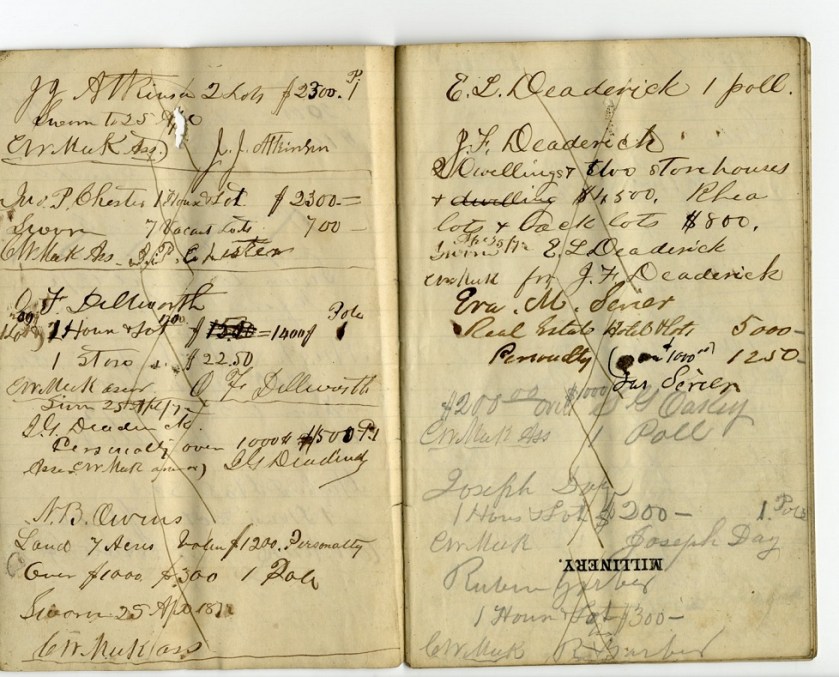 J J Atkinson 2 Lots $2300. P. 1
Sworn to 25
CW Meek Ass.) J. J. Atkinson
Jno. P. Chester 1 House & Lot $2300=
Sworn 7 Vacant lots 700 –
CW Meek Ass J. P. Chester
O F Dillworth
1 House & Lot = 1400 Pole 1
1 Store $22.50
CW Meek assor O F Dillworth
Sworn 25 Apl/72
J. G. Deaderick.
Personalty over 1000 $ $500 P. 1
CW Meek J G Deaderick
N. B. Owens
Land 7 Acres Value $1200. Personalty
Over $1000 $300 1 Pole
Sworn 25 Apl 1872
CW Meek ass
E. L. Deaderick 1 poll.
J. F. Deaderick
2 Dwellings & two store houses
& dwelling $4,500. Rhea
lots & back lots $800.
Sworn E L Deaderick
CW Meek for J. F. Deaderick
Eva. M. Sevier
Real Estate Hotel & Lots 5000–
Personalty 1250–
Jas Sevier
$200 00 over $1000 D G Oakey
CW Meek Ass 1 Poll
Joseph Day
1 House & Lot $200– 1 Pole
CW Meek Joseph Day
MILLINERY.
Ruben Garber
1 House & Lot $300–
CW Meek R Garber